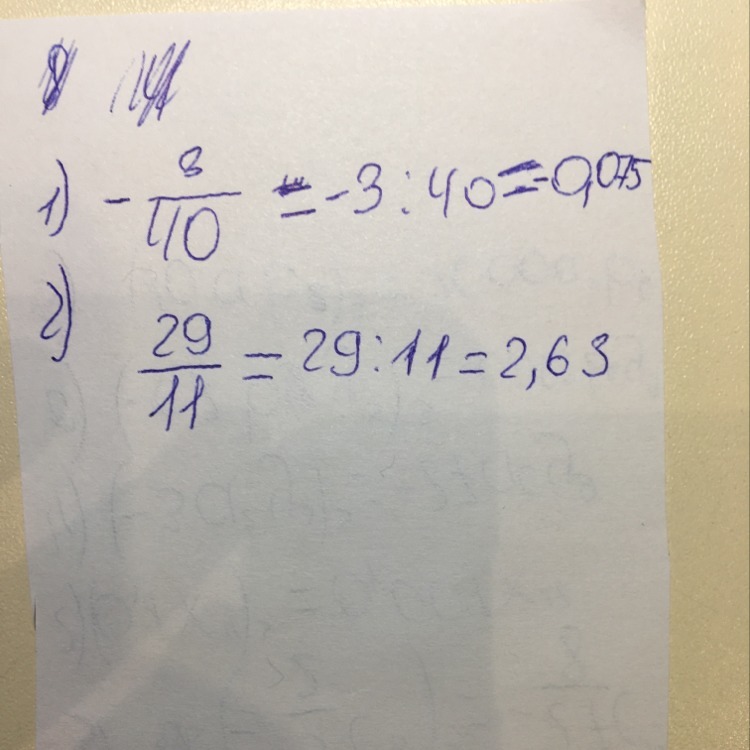 1) - 8/40 = -3 : 40 = -0,075
2) 29/11 = 29 : 11 = 2,63